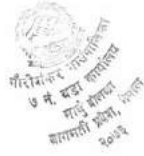 गौरीशंकर गाउँपालिका
७ नं. वडा कार्यालय
मार्बु दोलखा
बागमती प्रदेश, नेपाल
२०७३